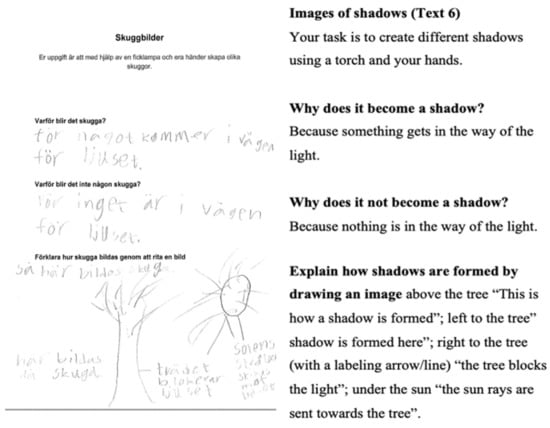 Skuggbilder
Er uppgift är att med hjälp av en ficklampa och era händer skapa olika
skuggor.
Varför blir det skugga?
för något kommer i vägen
för ljuset.
Varför blir det inte någon skugga?
för inget är i vägen
för ljuset.
Förklara hur skugga bildas genom att rita en bild
så här bildas skugga
här bildas
skugga
trädet
blokerar
ljuset
solens
Images of shadows (Text 6)
Your task is to create different shadows
using a torch and your hands.
Why does it become a shadow?
Because something gets in the way of the
light.
Why does it not become a shadow?
Because nothing is in the way of the light.
Explain how shadows are formed by
drawing an image above the tree “This is
how a shadow is formed”; left to the tree”
shadow is formed here”; right to the tree
(with a labeling arrow/line) “the tree blocks
the light”; under the sun “the sun rays are
sent towards the tree”.